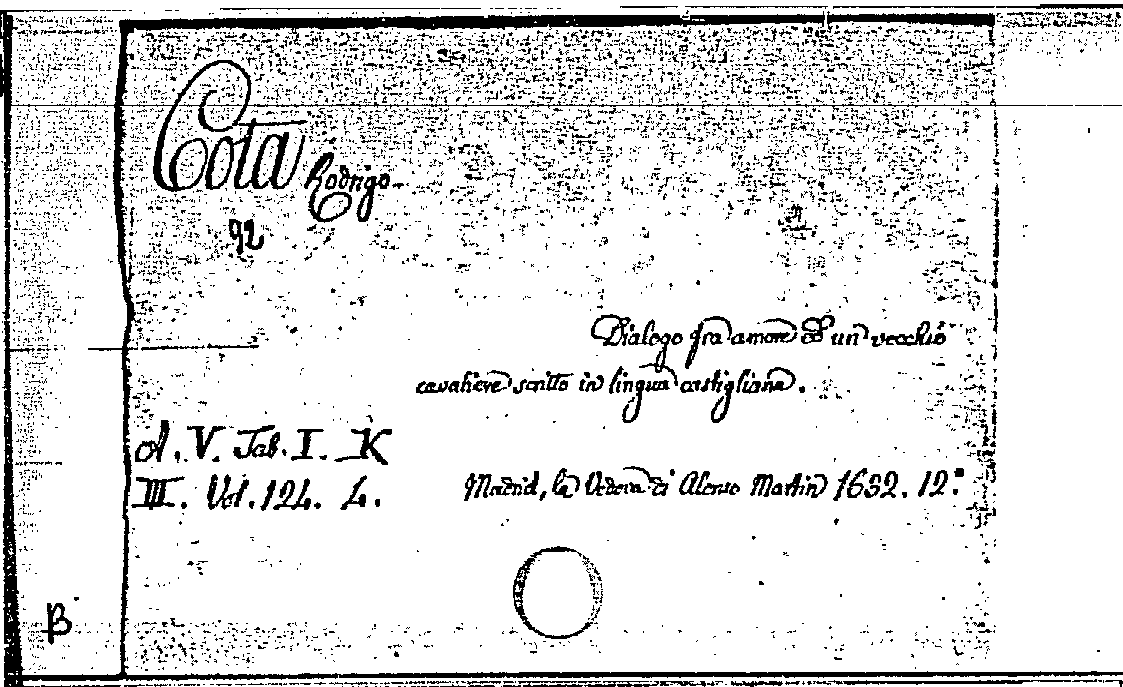 Cota Rodrigo
92
Dialogo fra amore ed un vecchio
cavaliere scritto in lingua castigliana.
A. V. Tab. I. K
III. Vol. 124. 4.
Madrid, la Vedova di Alonso Martin 1632. 12.°
B